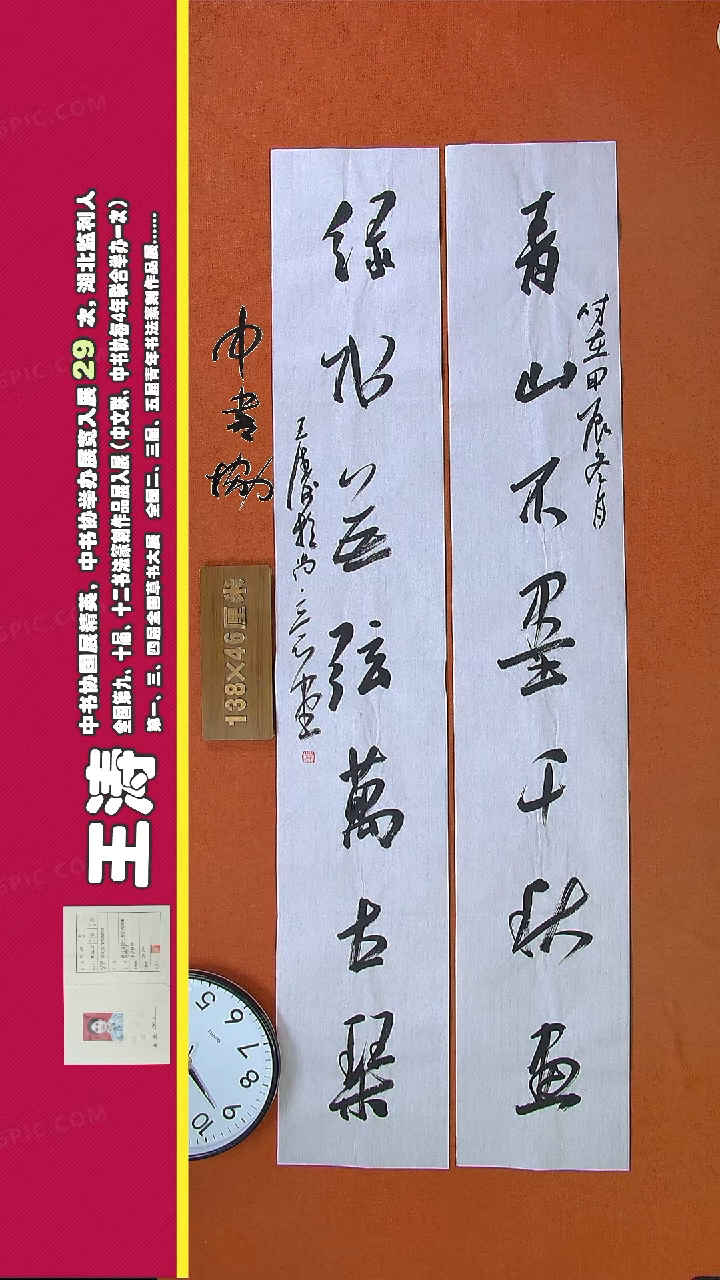 青山不墨千秋画
时在甲辰冬月
绿水无弦萬古琴
中书协
138×46厘米
王涛
中书协国展精英，中书协举办展览入展 29 次，湖北监利人
全国第九、十届、十二书法篆刻作品展入展（中文联、中书协每4年联合举办一次）
第一、三、四届全国草书大展 全国二、三届、五届青年书法篆刻作品展......
5
6
7
8
9
10